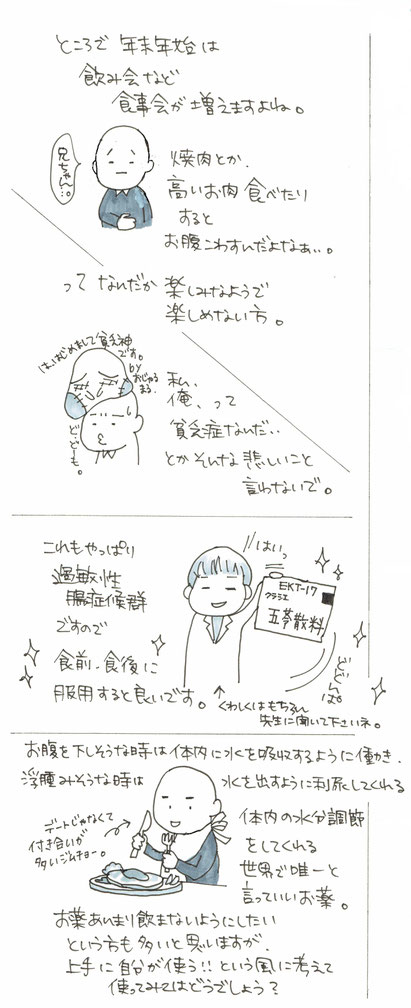 ところで 年末年始は
飲み会など
食事会が増えますよね。
兄ちゃん…。
焼肉とか、
高いお肉食べたり
すると
お腹こわすんだよなぁ…。
って なんだか 楽しみなようで
楽しめない方。
は、はじめまして貧乏神
です。
by
おじゃる
まる。
ど、ども。
私、
俺、って
貧乏症なんだ…
とかそんな悲しいこと
言わないで。
これもやっぱり
過敏性
腸症候群
ですので
食前・食後に
服用すると良いです。
はいっ
EKT-17
クラシエ
五苓散料
どどんぱ
くわしくはもちろん
先生に聞いて下さいネ。
お腹を下しそうな時は体内に水を吸収するように働き、
浮腫みそうな時は 水を出すように利尿してくれる
デートじゃなくて
付き合いが
多いジムチョー。
体内の水分調節
をしてくれる
世界で唯一と
言っていいお薬。
お薬あんまり飲まないようにしたい
という方も多いと思いますが、
上手に自分が使う!!という風に考えて
使ってみてはどうでしょう?